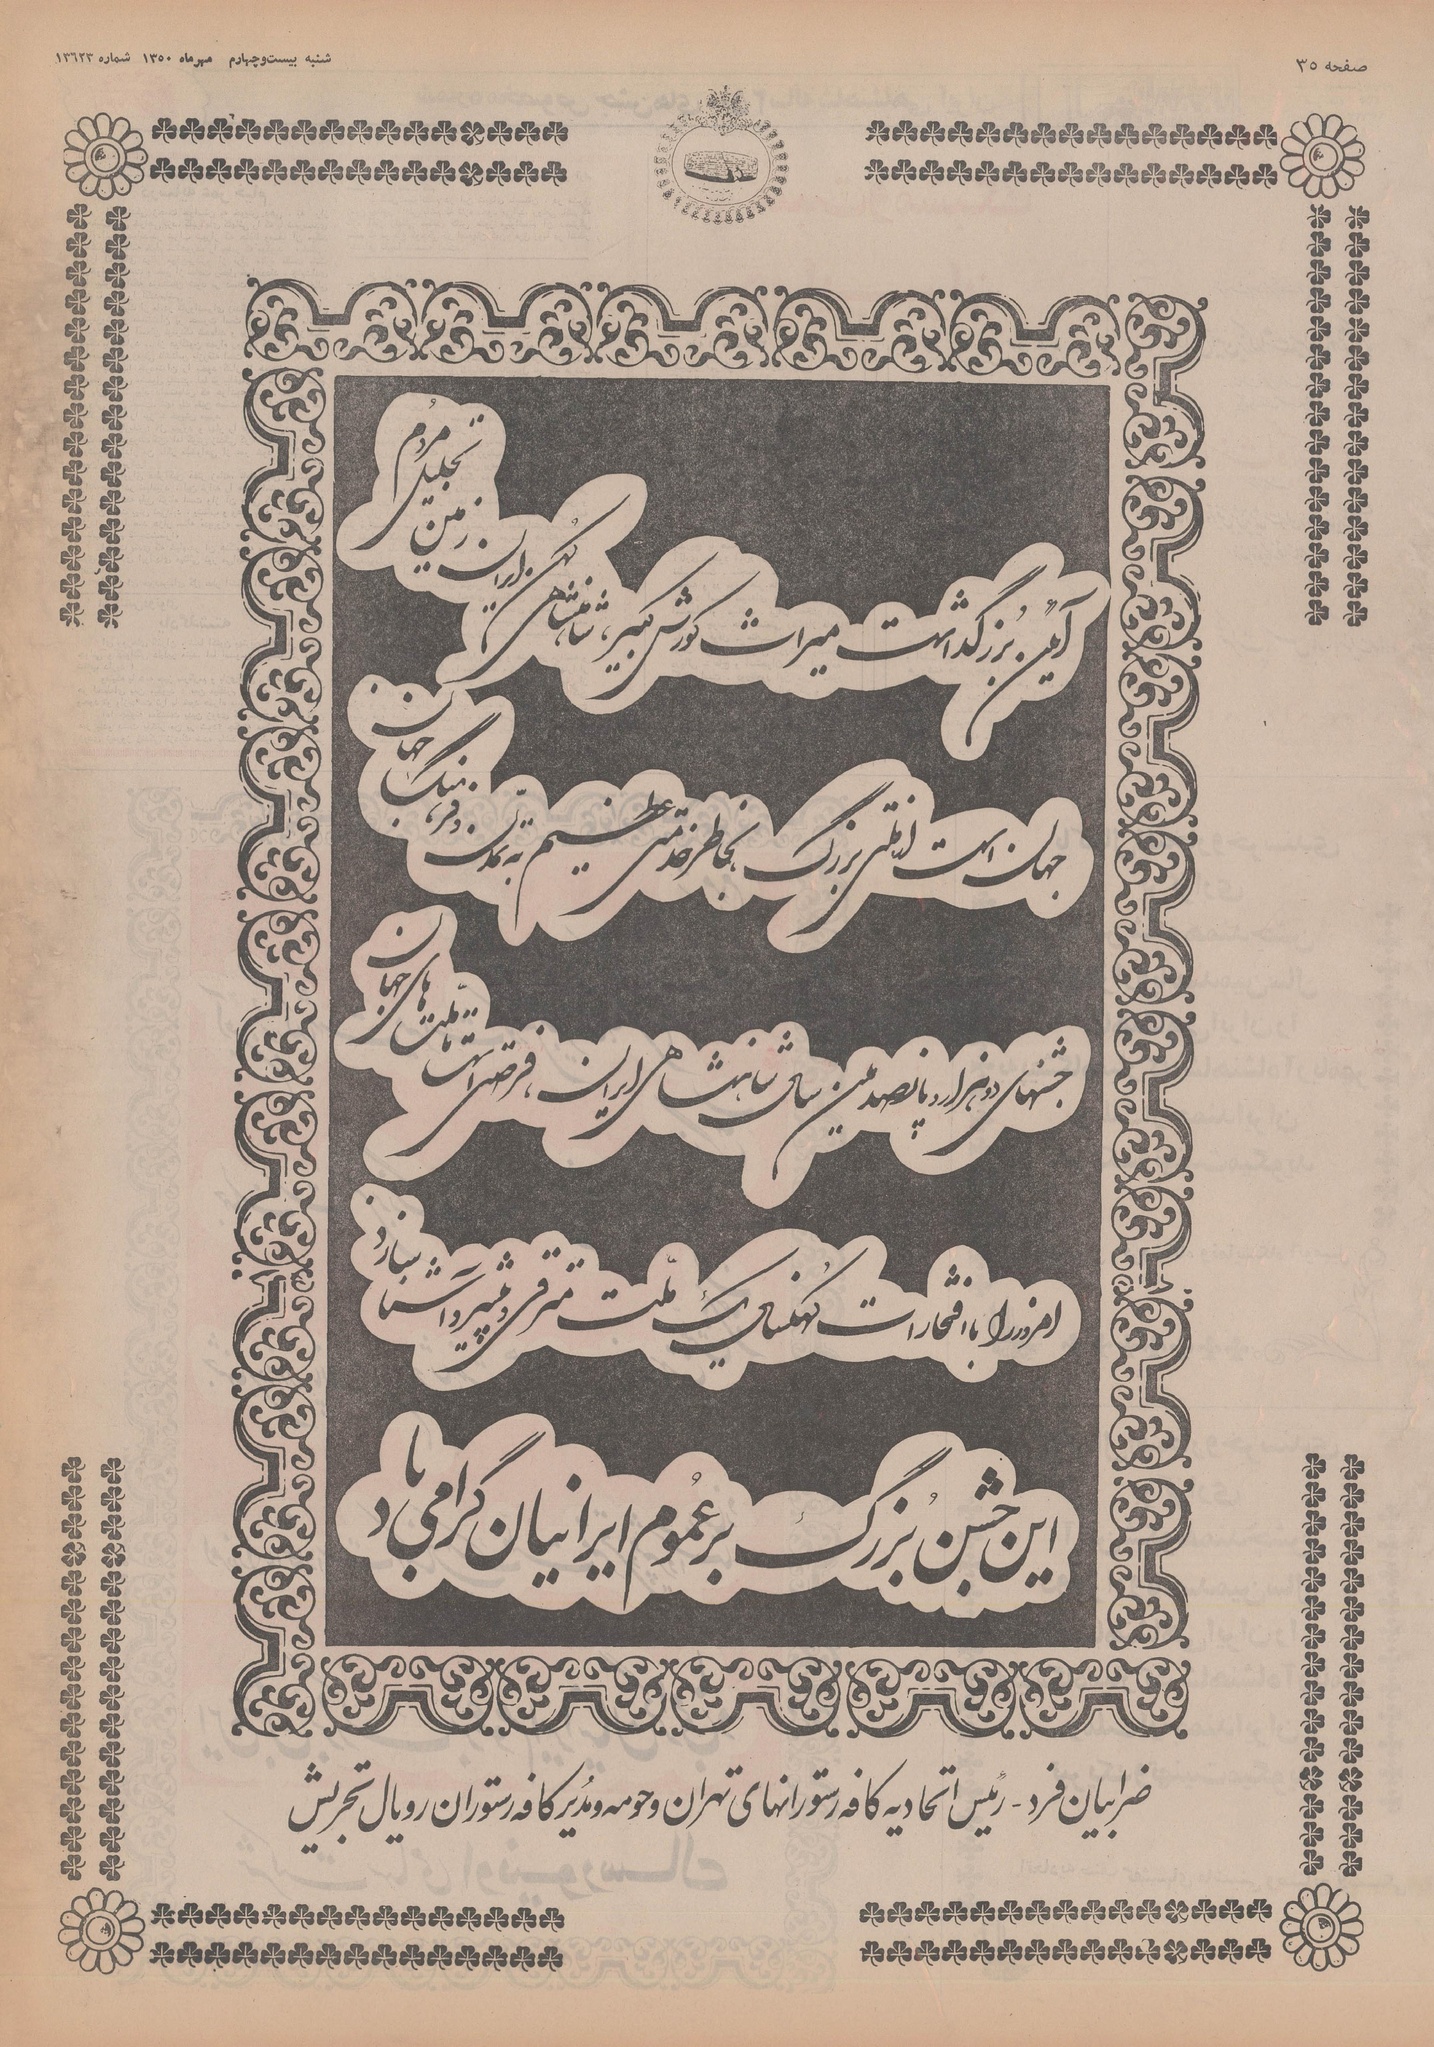 صفحه ۳۵
شنبه بیست‌وچهارم مهرماه ۱۳۵۰ شماره ۱۳۶۲۳
آئین بزرگداشت میراث کورش کبیر، شاهنشاهی کهن ایران زمین تجلیل مردم
جهان است از ملتی بزرگ بخاطر خدمتی عظیم به تمدن و فرهنگ جهان
جشنهای دوهزار و پانصدمین سال شاهنشاهی ایران، فرصتی است تا ملت های جهان
امروز را با افتخارات کهنسال یک ملت مترقی و پیشرو آشنا سازد
این جشن بزرگ بر عموم ایرانیان گرامی باد
ضرابیان فرد - رئیس اتحادیه کافه رستورانهای تهران و حومه و مدیر کافه رستوران رویال تجریش